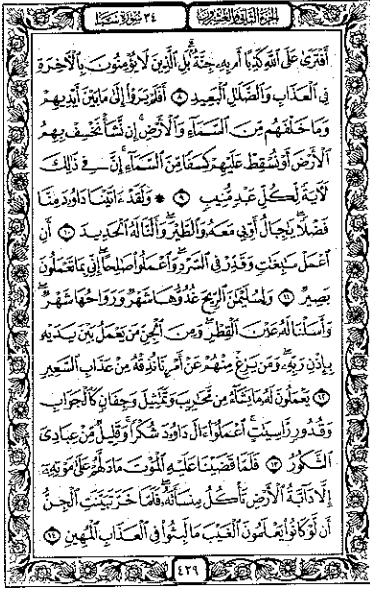 الجزء الثاني والعشرون
٣٤ سورة سبأ
أَفْتَرَىٰ عَلَى ٱللَّهِ كَذِبًا أَم بِهِۦ جِنَّةٌۢ بَلِ ٱلَّذِينَ لَا يُؤْمِنُونَ بِٱلْءَاخِرَةِ
فِى ٱلْعَذَابِ وَٱلضَّلَٰلِ ٱلْبَعِيدِ ٨ أَفَلَمْ يَرَوْا۟ إِلَىٰ مَا بَيْنَ أَيْدِيهِمْ
وَمَا خَلْفَهُم مِّنَ ٱلسَّمَآءِ وَٱلْأَرْضِ إِن نَّشَأْ نَخْسِفْ بِهِمُ
ٱلْأَرْضَ أَوْ نُسْقِطْ عَلَيْهِمْ كِسَفًا مِّنَ ٱلسَّمَآءِ إِنَّ فِى ذَٰلِكَ
لَءَايَةً لِّكُلِّ عَبْدٍ مُّنِيبٍ ٩ ۞ وَلَقَدْ ءَاتَيْنَا دَاوُۥدَ مِنَّا
فَضْلًا يَٰجِبَالُ أَوِّبِى مَعَهُۥ وَٱلطَّيْرَ وَأَلَنَّا لَهُ ٱلْحَدِيدَ ١٠ أَنِ
ٱعْمَلْ سَٰبِغَٰتٍ وَقَدِّرْ فِى ٱلسَّرْدِ وَٱعْمَلُوا۟ صَٰلِحًا إِنِّى بِمَا تَعْمَلُونَ
بَصِيرٌ ١١ وَلِسُلَيْمَٰنَ ٱلرِّيحَ غُدُوُّهَا شَهْرٌ وَرَوَاحُهَا شَهْرٌ
وَأَسَلْنَا لَهُۥ عَيْنَ ٱلْقِطْرِ وَمِنَ ٱلْجِنِّ مَن يَعْمَلُ بَيْنَ يَدَيْهِ
بِإِذْنِ رَبِّهِۦ وَمَن يَزِغْ مِنْهُمْ عَنْ أَمْرِنَا نُذِقْهُ مِنْ عَذَابِ ٱلسَّعِيرِ
١٢ يَعْمَلُونَ لَهُۥ مَا يَشَآءُ مِن مَّحَٰرِيبَ وَتَمَٰثِيلَ وَجِفَانٍ كَٱلْجَوَابِ
وَقُدُورٍ رَّاسِيَٰتٍ ٱعْمَلُوٓا۟ ءَالَ دَاوُۥدَ شُكْرًا وَقَلِيلٌ مِّنْ عِبَادِىَ
ٱلشَّكُورُ ١٣ فَلَمَّا قَضَيْنَا عَلَيْهِ ٱلْمَوْتَ مَا دَلَّهُمْ عَلَىٰ مَوْتِهِۦٓ
إِلَّا دَآبَّةُ ٱلْأَرْضِ تَأْكُلُ مِنسَأَتَهُۥ فَلَمَّا خَرَّ تَبَيَّنَتِ ٱلْجِنُّ
أَن لَّوْ كَانُوا۟ يَعْلَمُونَ ٱلْغَيْبَ مَا لَبِثُوا۟ فِى ٱلْعَذَابِ ٱلْمُهِينِ ١٤
٤٢٩